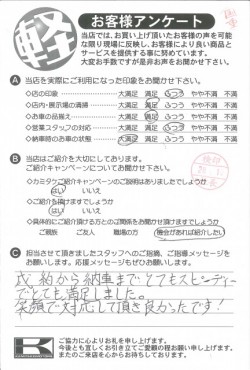 軽
お客様アンケート
当店では、お買い上げ頂いたお客様の声を可能
な限り現場に反映し、お客様により良い商品と
サービスを提供する事に努めています。
大変お手数ですが是非お声をお聞かせ下さい。
A 当店を実際にご利用になった印象をお聞かせ下さい。
◇店の印象 大満足 満足 ふつう やや不満 不満
◇店内・展示場の清掃 大満足 満足 ふつう やや不満 不満
◇お車の品揃え 大満足 満足 ふつう やや不満 不満
◇営業スタッフの対応 大満足 満足 ふつう やや不満 不満
◇納車時のお車の状態 大満足 満足 ふつう やや不満 不満
B 当店はご紹介を大切にしております。
ご紹介キャンペーンについて
お聞かせください。
◇カミタケご紹介キャンペーンのご説明はありましたでしょうか
はい いいえ
◇ご紹介を頂けますでしょうか
はい いいえ
◇具体的にご紹介頂ける方とのご関係をお聞かせ頂けますでしょうか
ご親族 ご友人 職場の方 機会があれば紹介したい
C 担当させて頂きましたスタッフへのご指摘、ご指導メッセージを
お願いします。応援メッセージもぜひお願いします。
成約から納車までとてもスピーディー
でとても満足しました。
笑顔で対応して頂き良かったです!
K
ご協力に心よりお礼を申し上げます。
今後とも宜しくお引き立てご愛顧の程お願い申し上げます。
またのご来店を心からお待ちしております。